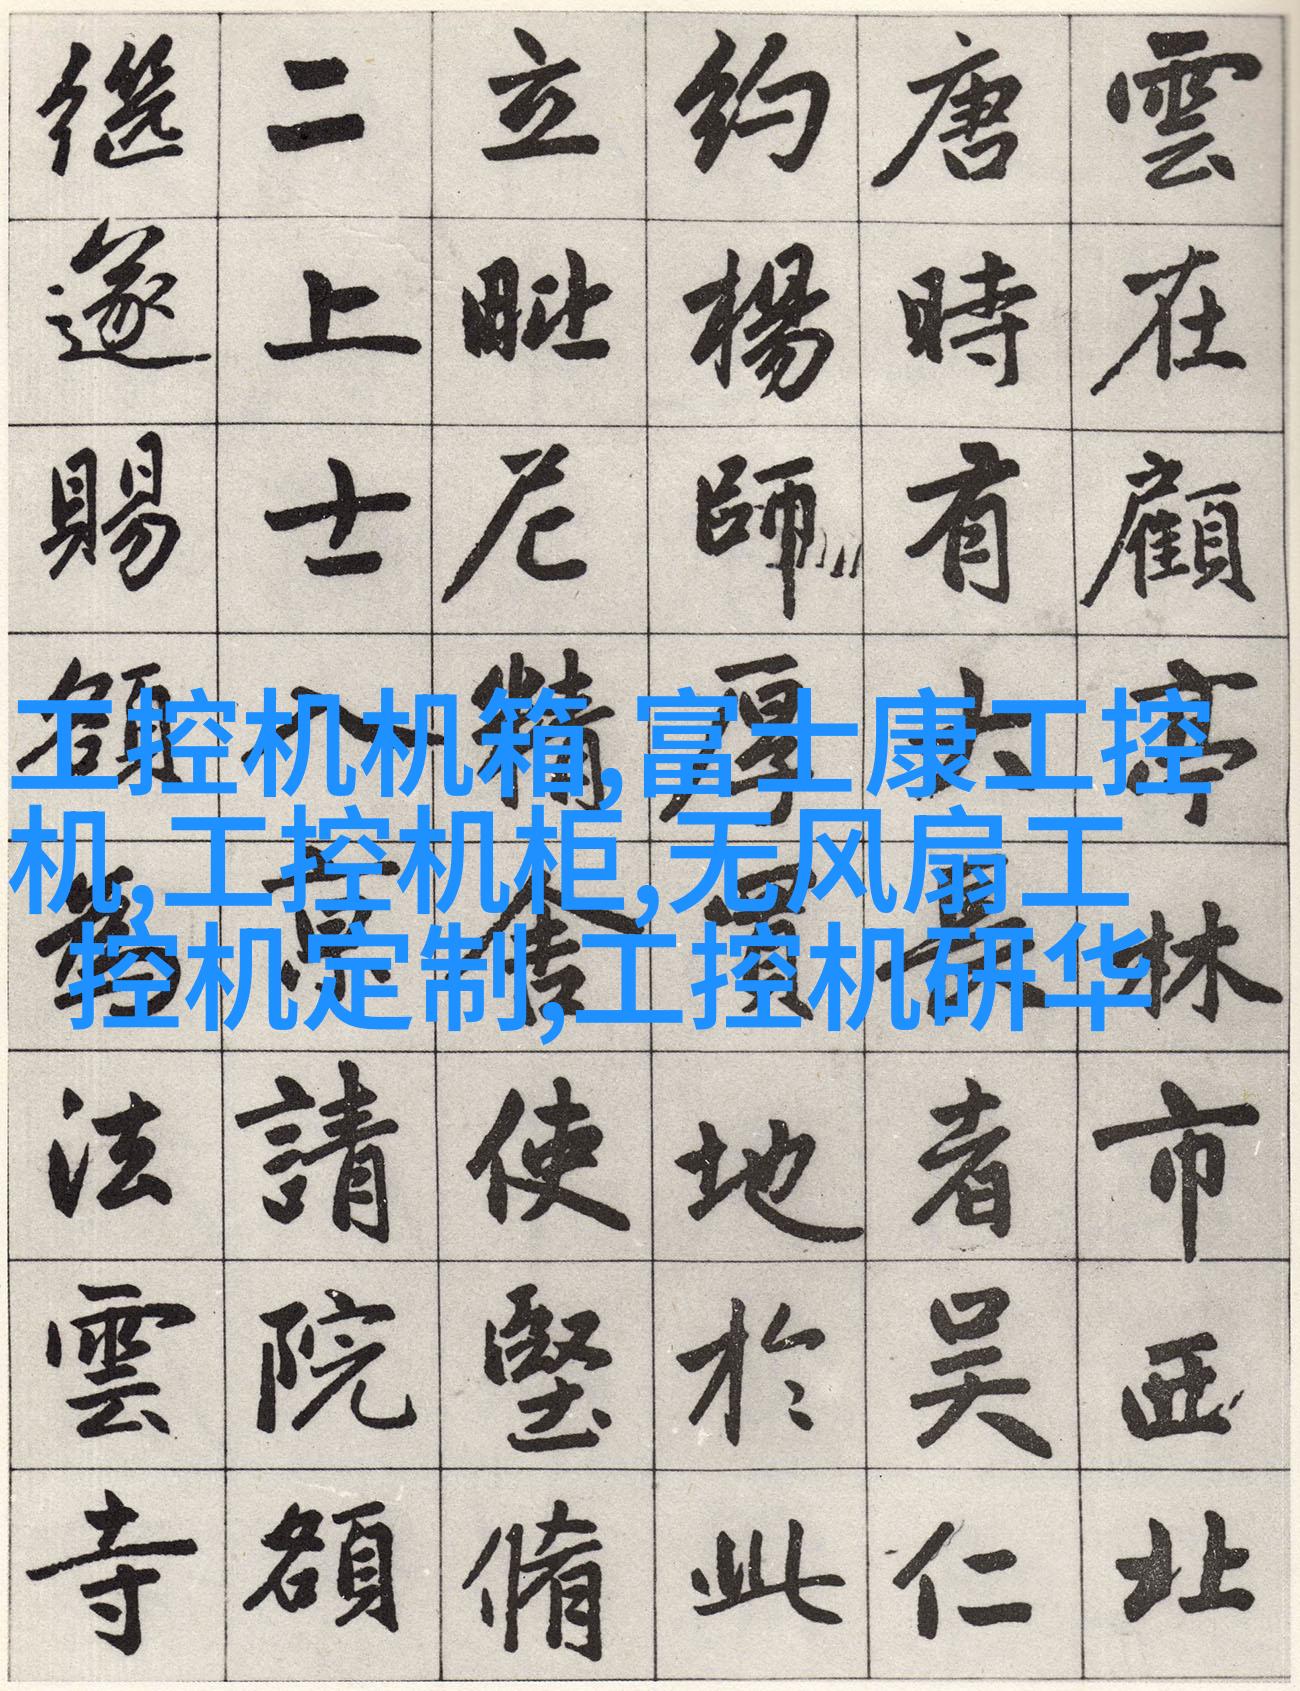 雲在顧亭林市西北
唐時有大者吴仁
約楊師厚買地於此
立毗尼精舍使竪脩
二上士入京請院額
繼遂賜額為法雲寺
工控机机箱,富士康工控
机,工控机柜,无风扇工
控机定制,工控机研华